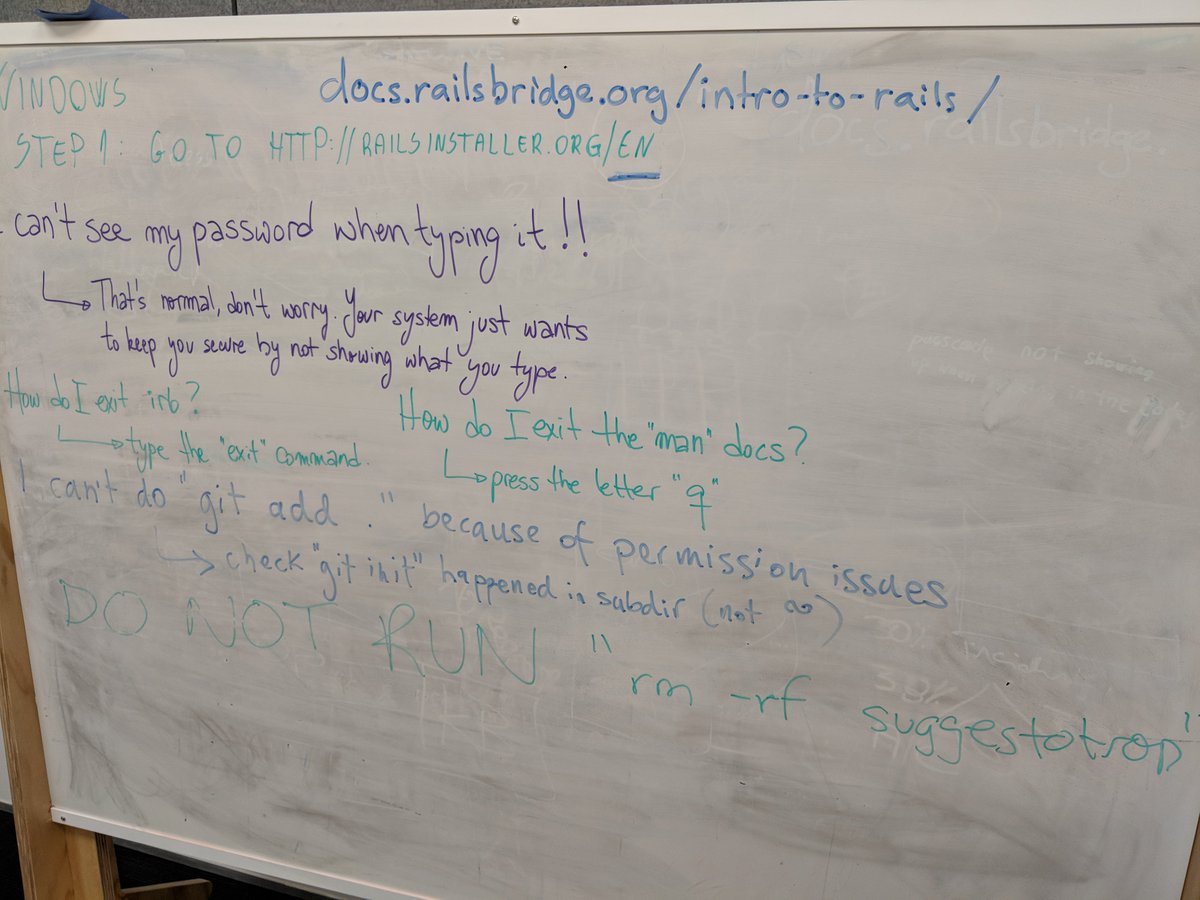 docs.railsbridge.org/intro-to-rails/
WINDOWS
STEP 1: GO TO HTTP://RAILSINSTALLER.ORG/EN
docs.railsbridge.
can't see my password when typing it!!
That's normal, don't worry. Your system just wants
to keep you secure by not showing what you type.
passcode not showing
in the
How do I exit irb?
type the "exit" command.
How do I exit the "man" docs?
press the letter "q"
I can't do "git add ." because of permission issues
check "git init" happened in subdir (not ~)
DO NOT RUN "rm -rf suggestotron"